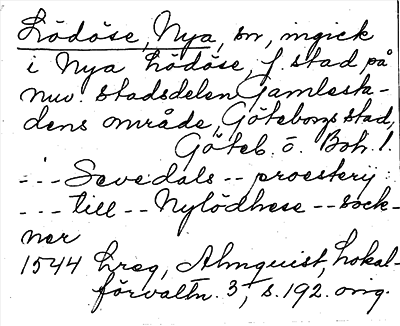 Lödöse, Nya, sn, ingick
i Nya Lödöse, f. stad på
nuv. stadsdelen Gamlesta-
dens område, Göteborgs stad,
Göteb. o. Boh. l.
--- Sevedals -- proesterij
--- till -- Nylödhese -- sock-
ner
1544 Lreg, Almquist, Lokal-
förvaltn. 3, s. 192. orig.